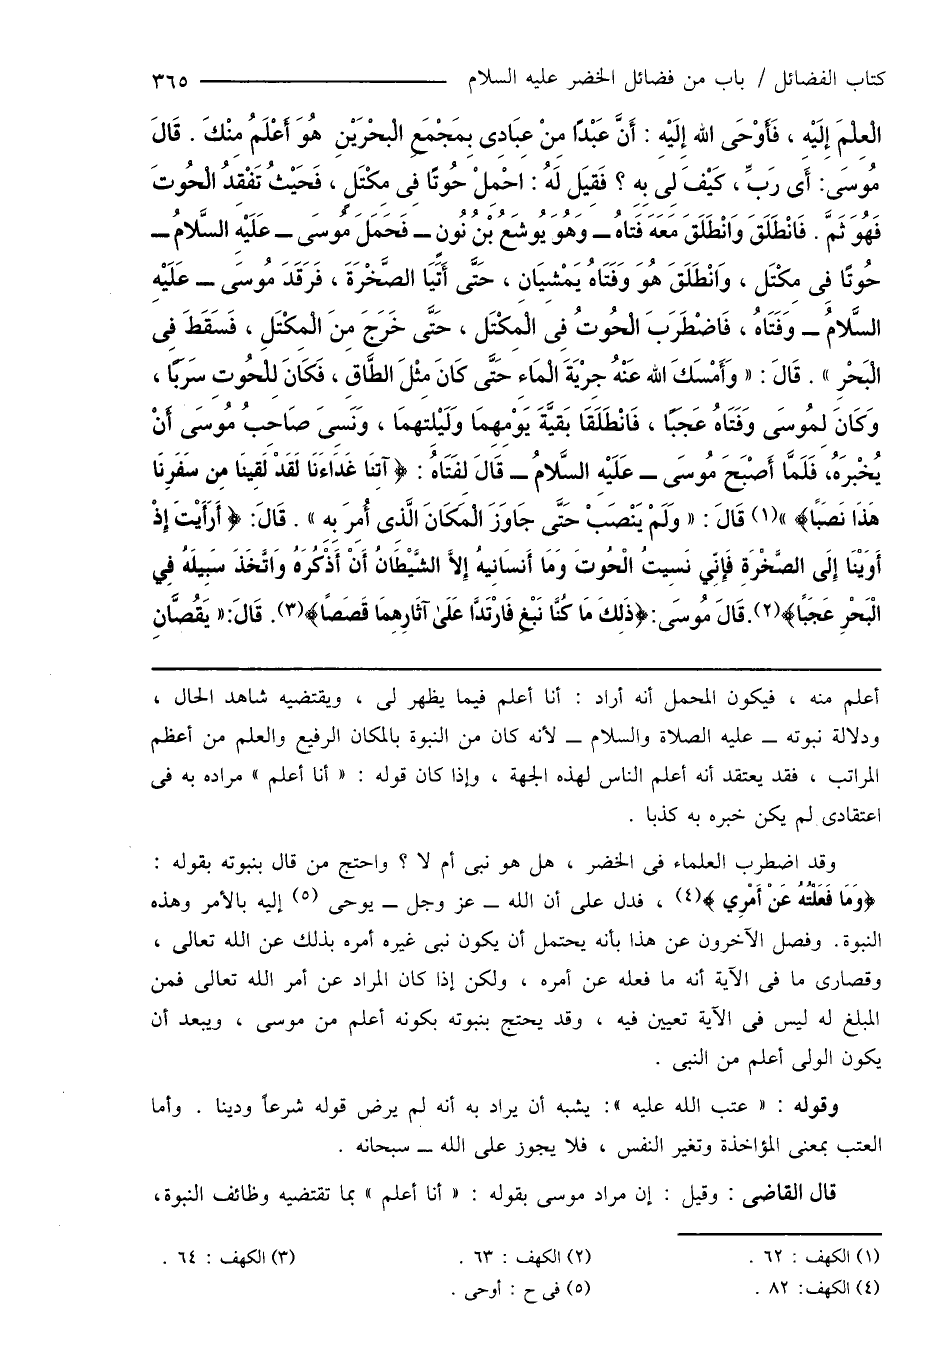 كتاب الفضائل / باب من فضائل الخضر عليه السلام ــــــــــــــــ ٣٦٥
الْعلْمَ إِلَيْه ، فَأَوْحَى الله إِلَيْه : أَنَّ عَبْدًا منْ عبَادى بمَجْمَع الْبَحْرَيْن هُوَ أَعْلَمُ منْكَ . قَالَ
مُوسَى: أَى رَبِّ ، كَيْفَ لى به ؟ فَقيلَ لَهُ : احْملْ حُوتًا فى مكْتَلٍ ، فَحَيْثُ تَفْقدُ الْحُوتَ
فَهُوَ ثَمَّ . فَانْطَلَقَ وَانْطَلَقَ مَعَهُ فَتَاهُ ــ وَهُوَ يُوشَعُ بْنُ نُونٍ ــ فَحَمَلَ مُوسَى ــ عَلَيْه السَّلامُ ــ
حُوتًا فى مكْتَلٍ ، وَانْطَلَقَ هُوَ وَفَتَاهُ يَمْشيَان ، حَتَّى أَتَيَا الصَّخْرَةَ ، فَرَقَدَ مُوسَى ــ عَلَيْه
السَّلامُ ــ وَفَتَاهُ ، فَاضْطَرَبَ الْحُوتُ فى الْمكْتَل ، حَتَّى خَرَجَ منَ الْمكْتَل ، فَسَقَطَ فى
الْبَحْر » . قَالَ : « وَأَمْسَكَ الله عَنْهُ جرْيَةَ الْمَاء حَتَّى كَانَ مثْلَ الطَّاق ، فَكَانَ للْحُوت سَرَبًا ،
وَكَانَ لمُوسَى وَفَتَاهُ عَجَبًا ، فَانْطَلَقَا بَقيَّةَ يَوْمهمَا وَلَيْلَتهمَا ، وَنَسىَ صَاحبُ مُوسَى أَنْ
يُخْبرَهُ، فَلَمَّا أَصْبَحَ مُوسَى ــ عَلَيْه السَّلامُ ــ قَالَ لفَتَاهُ : ﴿ آتنَا غَدَاءَنَا لَقَدْ لَقينَا من سَفَرنَا
هَذَا نَصَبًا﴾ »(١) قَالَ : « وَلَمْ يَنْصَبْ حَتَّى جَاوَزَ الْمَكَانَ الَّذى أُمرَ به » . قَالَ: ﴿ أَرَأَيْتَ إِذْ
أَوَيْنَا إِلَى الصَّخْرَة فَإِنّي نَسيتُ الْحُوتَ وَمَا أَنسَانيهُ إِلاَّ الشَّيْطَانُ أَنْ أَذْكُرَهُ وَاتَّخَذَ سَبيلَهُ في
الْبَحْر عَجَبًا﴾(٢).قَالَ مُوسَى:﴿ذَلكَ مَا كُنَّا نَبْغ فَارْتَدَّا عَلَىٰ آثَارهمَا قَصَصًا﴾(٣). قَالَ:« يَقُصَّان
أعلم منه ، فيكون المحمل أنه أراد : أنا أعلم فيما يظهر لى ، ويقتضيه شاهد الحال ،
ودلالة نبوته ــ عليه الصلاة والسلام ــ لأنه كان من النبوة بالمكان الرفيع والعلم من أعظم
المراتب ، فقد يعتقد أنه أعلم الناس لهذه الجهة ، وإذا كان قوله : « أنا أعلم » مراده به فى
اعتقادى لم يكن خبره به كذبا .
وقد اضطرب العلماء فى الخضر ، هل هو نبى أم لا ؟ واحتج من قال بنبوته بقوله :
﴿وَمَا فَعَلْتُهُ عَنْ أَمْرِي ﴾(٤) ، فدل على أن الله ــ عز وجل ــ يوحى (٥) إليه بالأمر وهذه
النبوة. وفصل الآخرون عن هذا بأنه يحتمل أن يكون نبى غيره أمره بذلك عن الله تعالى ،
وقصارى ما فى الآية أنه ما فعله عن أمره ، ولكن إذا كان المراد عن أمر الله تعالى فمن
المبلغ له ليس فى الآية تعيين فيه ، وقد يحتج بنبوته بكونه أعلم من موسى ، ويبعد أن
يكون الولى أعلم من النبى .
وقوله : « عتب الله عليه »: يشبه أن يراد به أنه لم يرض قوله شرعاً ودينا . وأما
العتب بمعنى المؤاخذة وتغير النفس ، فلا يجوز على الله ــ سبحانه .
قال القاضى : وقيل : إن مراد موسى بقوله : « أنا أعلم » بما تقتضيه وظائف النبوة،
(١) الكهف : ٦٢ . (٢) الكهف : ٦٣ . (٣) الكهف : ٦٤ .
(٤) الكهف: ٨٢ . (٥) فى ح : أوحى .